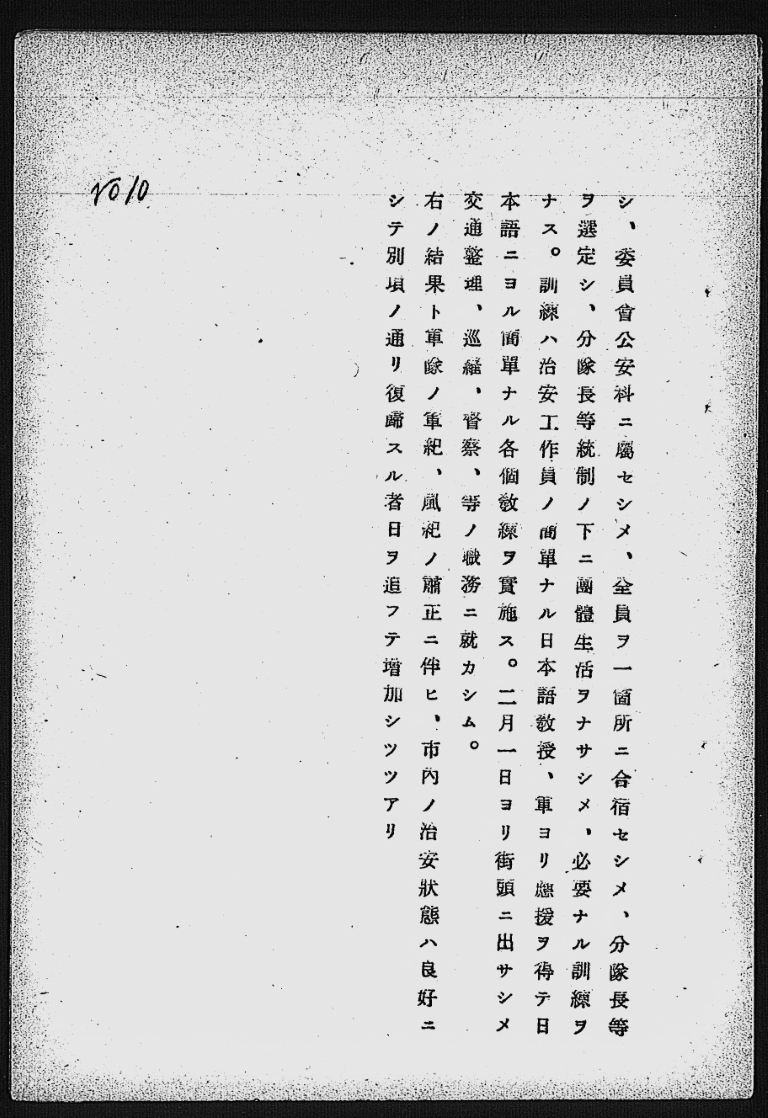 シ、委員會公安科ニ屬セシメ、全員ヲ一箇所ニ合宿セシメ、分隊長等
ヲ選定シ、分隊長等統制ノ下ニ團體生活ヲナサシメ、必要ナル訓練ヲ
ナス。訓練ハ治安工作員ノ簡單ナル日本語敎授、軍ヨリ應援ヲ得テ日
本語ニヨル簡單ナル各個敎練ヲ實施ス。二月一日ヨリ街頭ニ出サシメ
交通整理、巡邏、督察、等ノ職務ニ就カシム。
右ノ結果ト軍隊ノ軍紀、風紀ノ肅正ニ伴ヒ、市內ノ治安狀態ハ良好ニ
シテ別項ノ通リ復歸スル者日ヲ追フテ增加シツツアリ
No 10